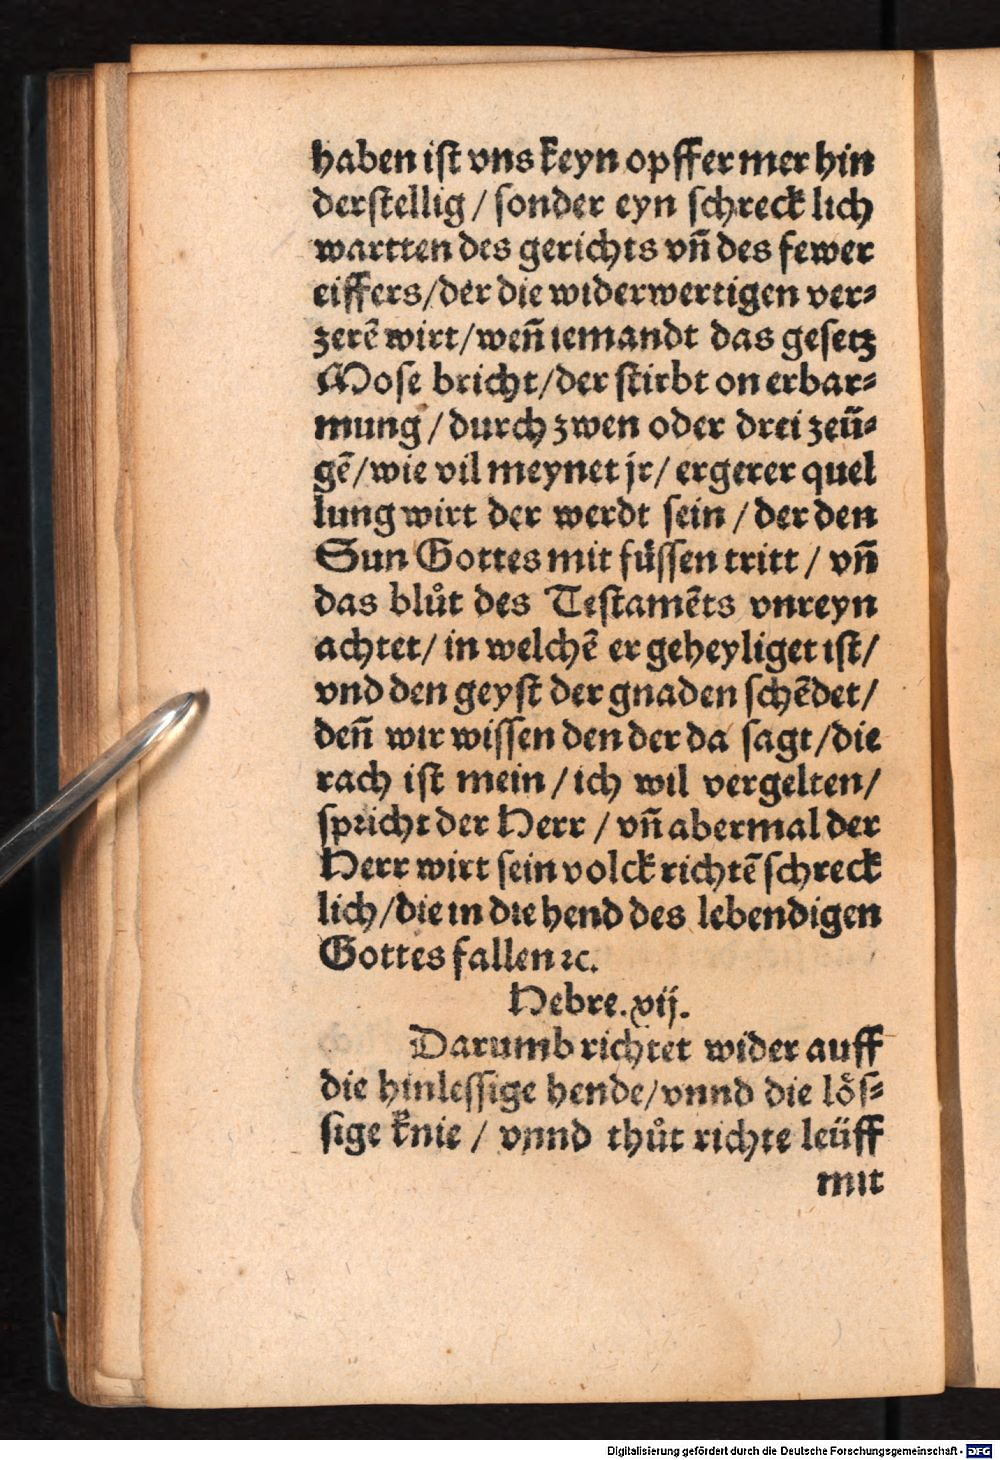 haben ist vns keyn opffer mer hin
derstellig / sonder eyn schreck lich
wartten des gerichts vn̄ des fewer
eiffers/der die widerwertigen ver⸗
zerē wirt/wen̄ iemandt das gesetz
Mose bricht/der stirbt on erbar⸗
mung / durch zwen oder drei zeū⸗
gē/wie vil meynet jr/ ergerer quel
lung wirt der werdt sein / der den
Sun Gottes mit füssen tritt / vn̄
das blůt des Testamēts vnreyn
achtet/ in welchē er geheyliget ist/
vnd den geyst der gnaden schēdet/
den̄ wir wissen den der da sagt/die
rach ist mein / ich wil vergelten/
spricht der Herr / vn̄ abermal der
Herr wirt sein volck richtē schreck
lich/die in die hend des lebendigen
Gottes fallen ꝛc.
Hebre.vij.
Darumb richtet wider auff
die hinlessige hende/vnnd die lös⸗
sige knie / vnnd thůt richte leüff
mit
Digitalisierung gefördert durch die Deutsche Forschungsgemeinschaft - DFG